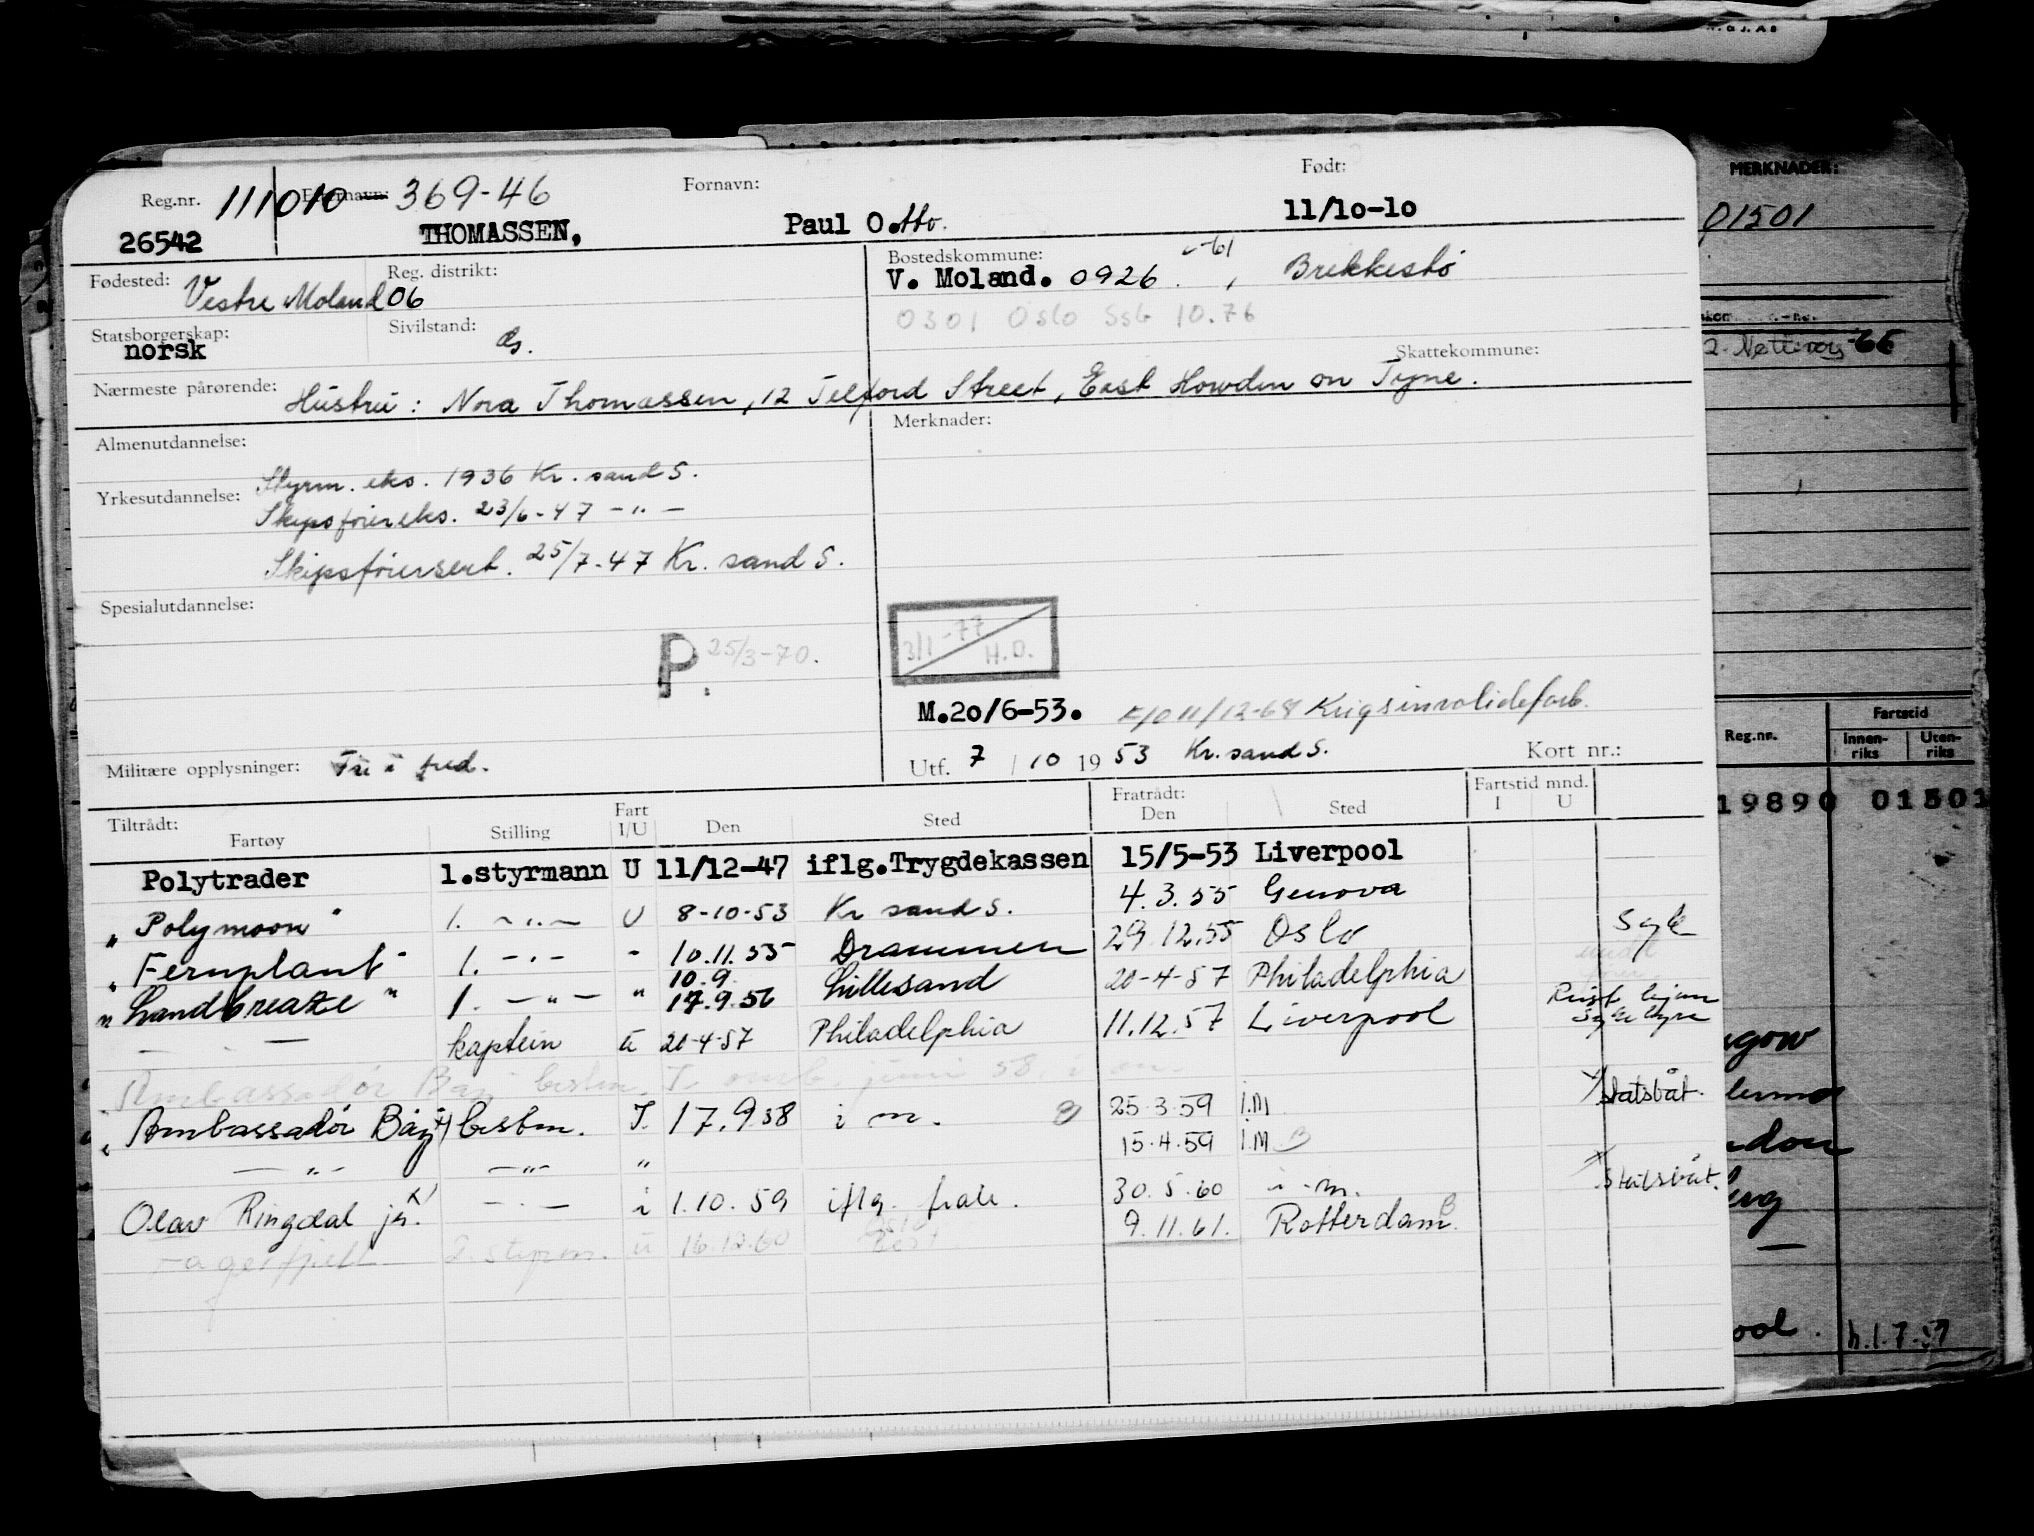 Reg.nr. 111010 Etternavn: 369-46 Fornavn: Født:
26542 THOMASSEN, Paul O.tto. 11/10-10
Fødested: Vestre Moland Reg. distrikt: 06 Bostedskommune: V. Moland. 0926 -61, Brekkestø
0301 Oslo Ssb 10.76
Statsborgerskap: norsk Sivilstand: g.
Skattekommune:
Nærmeste pårørende: Hustru: Nora Thomassen, 12 Telford Street, East Howden on Tyne.
Almenutdannelse: Merknader:
Styrm. eks. 1936 Kr. sand S.
Yrkesutdannelse: Skipsførereks. 23/6-47 -"-
Skipsførersert. 25/7-47 Kr. sand S.
Spesialutdannelse:
P. 25/3-70. 3/1-77 H.O.
M.20/6-53. 11/12-68 Krigsinvalideforb.
Militære opplysninger: Fri i fred. Utf. 7/10 1953 Kr. sand S. Kort nr.:
Tiltrådt: Fratrådt: Fartstid mnd.
Fartøy Stilling Fart I/U Den Sted Den Sted I U
Polytrader 1.styrmann U 11/12-47 iflg.Trygdekassen 15/5-53 Liverpool
"Polymoon" 1. -"- U 8-10-53 Kr sand S. 4.3.55 Genova
"Fernplant" 1. -"- - 10.11.55 Drammen 29.12.55 Oslo Syk
"Sandbreaze" 1. -"- " 10.9 17.9.56 Lillesand 20-4-57 Philadelphia
- - kaptein u 20-4-57 Philadelphia 11.12.57 Liverpool
Ambassadør Bay bestm. I juni 58
"Ambassadør Bay x) bestm. I. 17.9.58 i m. 25.3.59 I.M x) Statsbåt.
-"- -"- " 15.4.59 I.M B
Olav Ringdal jr. x) -"- i 1.10.59 iflg. 30.5.60 i m. x) Statsbåt.
2. styrm. u 16.12.60 9.11.61. Rotterdam. B
N.G.J.AS
MERKNADER:
01501
-66
Reg.nr. Fartstid
Innen-riks Uten-riks
19890 01501
h.1.7.57